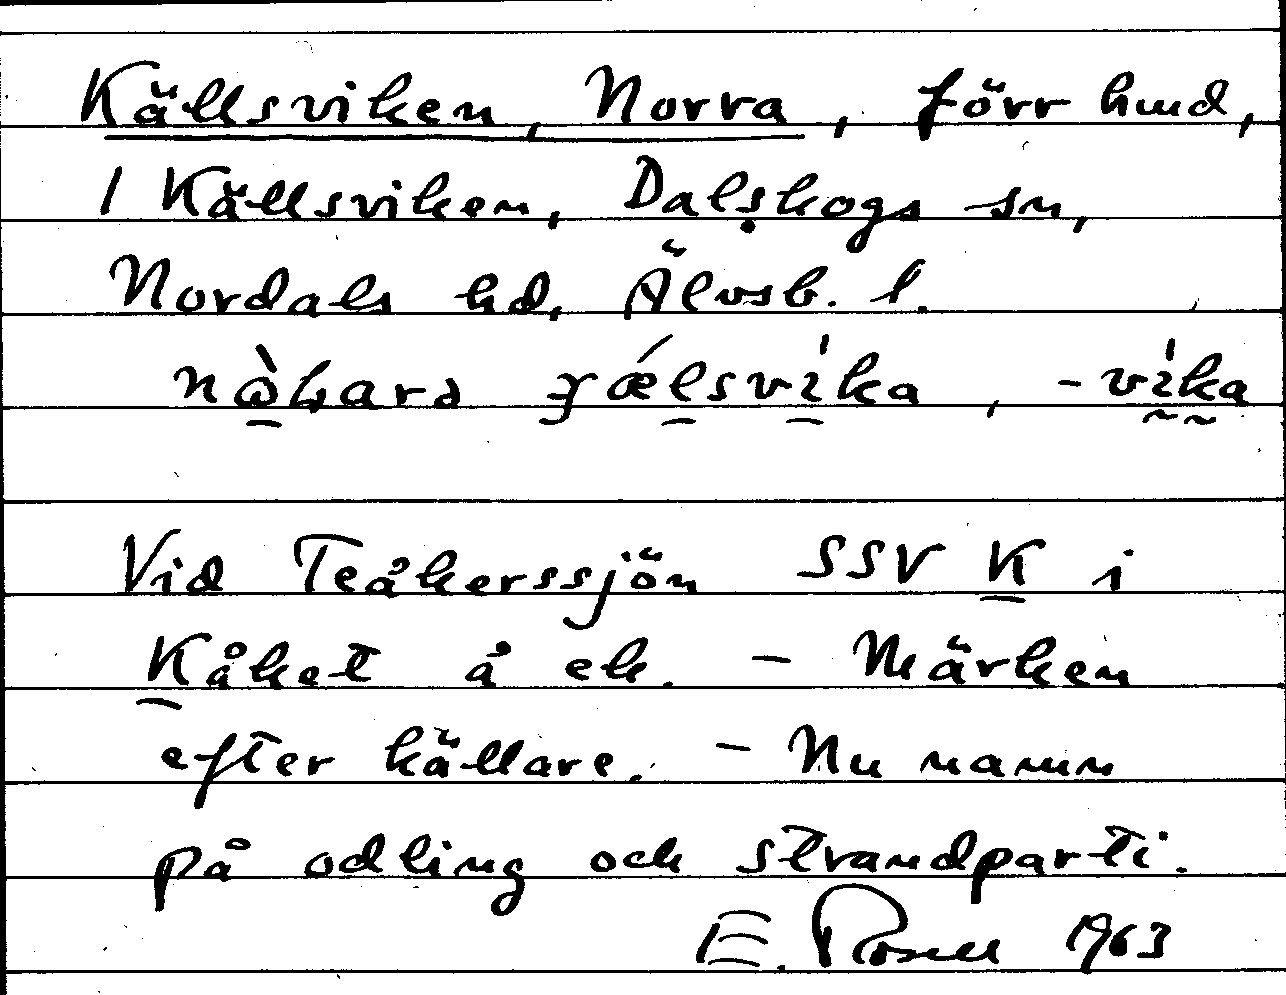 Källsviken, Norra, förr hmd,
1 Källsviken, Dalskogs sn,
Nordals hd, Älvsb. l.
Vid Teåkerssjön SSV K i
Kåket å ek. - Märken
efter källare. - Nu namn
på odling och strandparti.
E. Rosell 1963